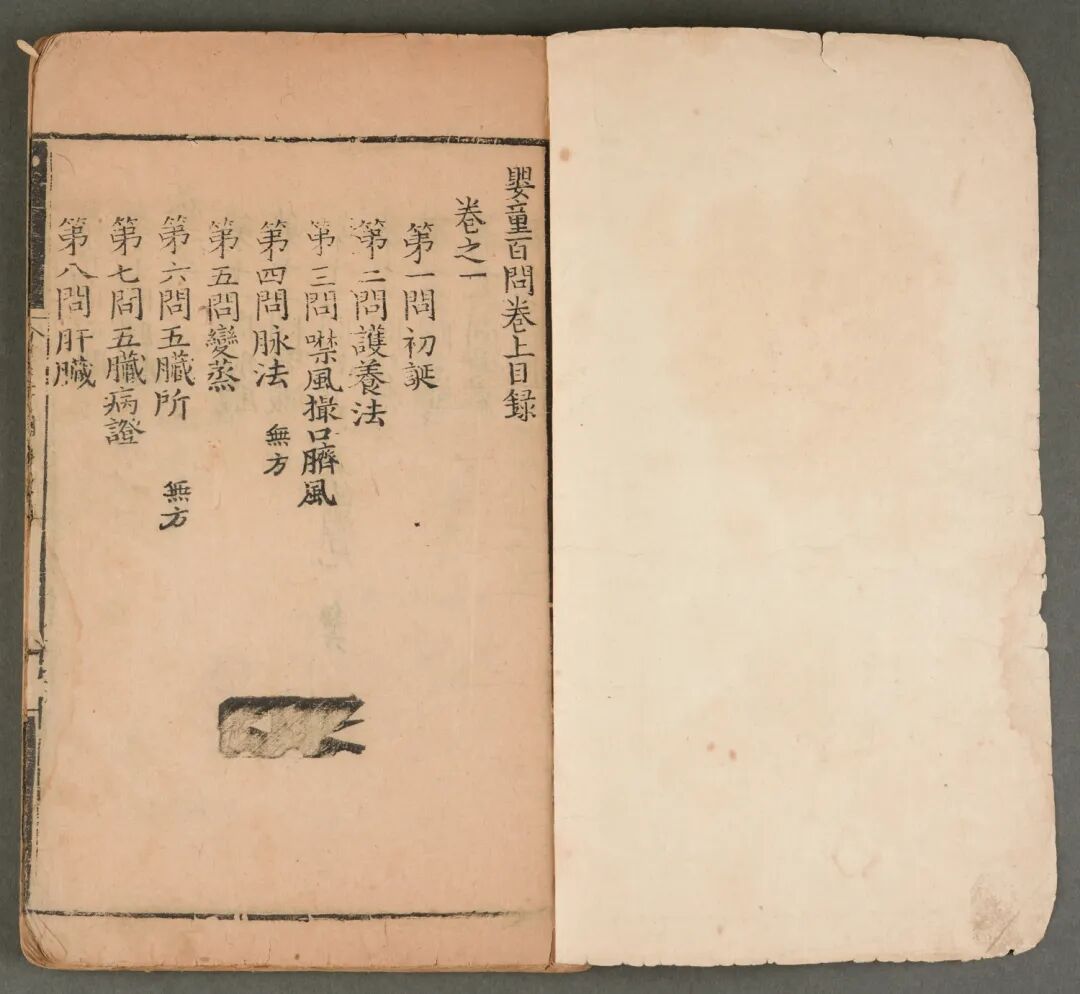 嬰童百問卷上目録
卷之一
第一問初誕
第二問護養法
第三問噤風撮口臍風
第四問脉法 無方
第五問變蒸
第六問五臟所 無方
第七問五臟病證
第八問肝臟